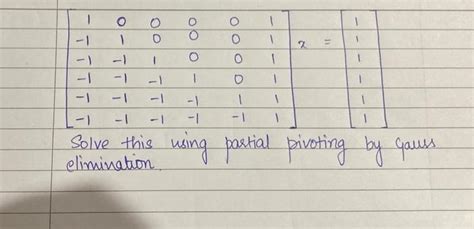 1 0 0 0 0 1 1
-1 1 0 0 0 1 x = 1
-1 -1 1 0 0 1 1
-1 -1 -1 1 0 1 1
-1 -1 -1 -1 1 1 1
-1 -1 -1 -1 -1 1 1
Solve this using partial pivoting by Gauss
elimination.